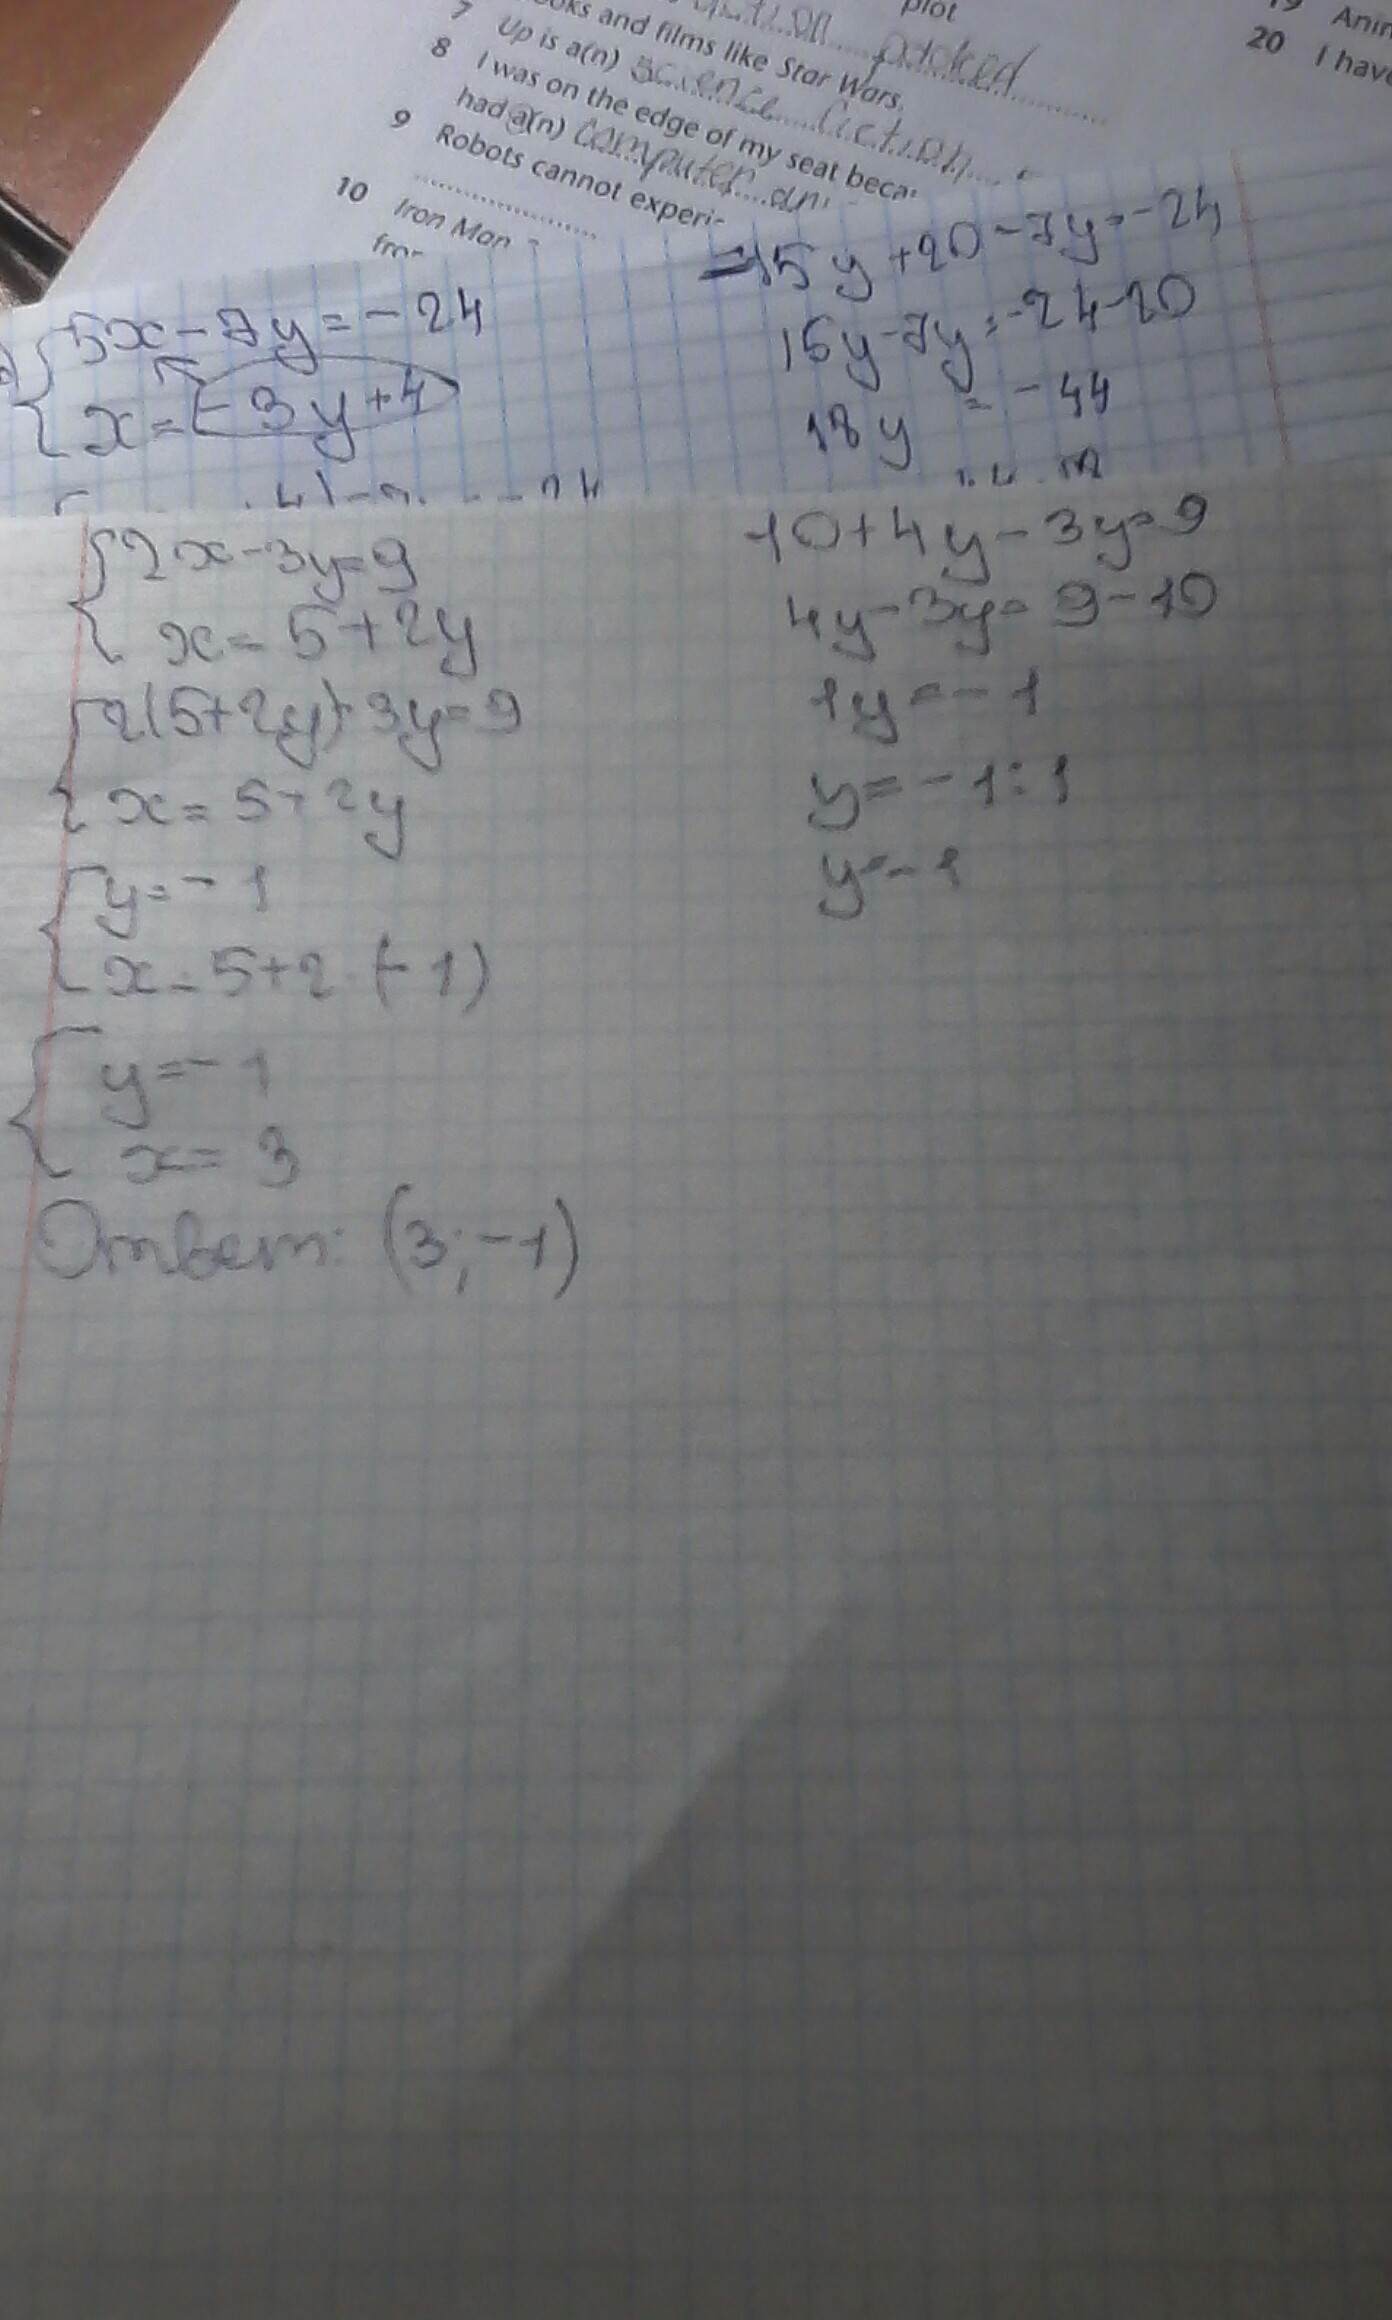 plot
packed
19 Anim
20 I have
books and films like Star Wars.
7 Up is a(n) science fiction
8 I was on the edge of my seat beca
had a(n) computer an
9 Robots cannot experi
10 Iron Man
5x-7y=-24
x=-3y+4
15y+20-7y=-24
15y-7y=-24-20
18y = -44
2x-3y=9
x=5+2y
2(5+2y)-3y=9
x=5+2y
y=-1
x=5+2·(-1)
y=-1
x=3
Ответ: (3;-1)
10+4y-3y=9
4y-3y=9-10
1y=-1
y=-1:1
y=-1